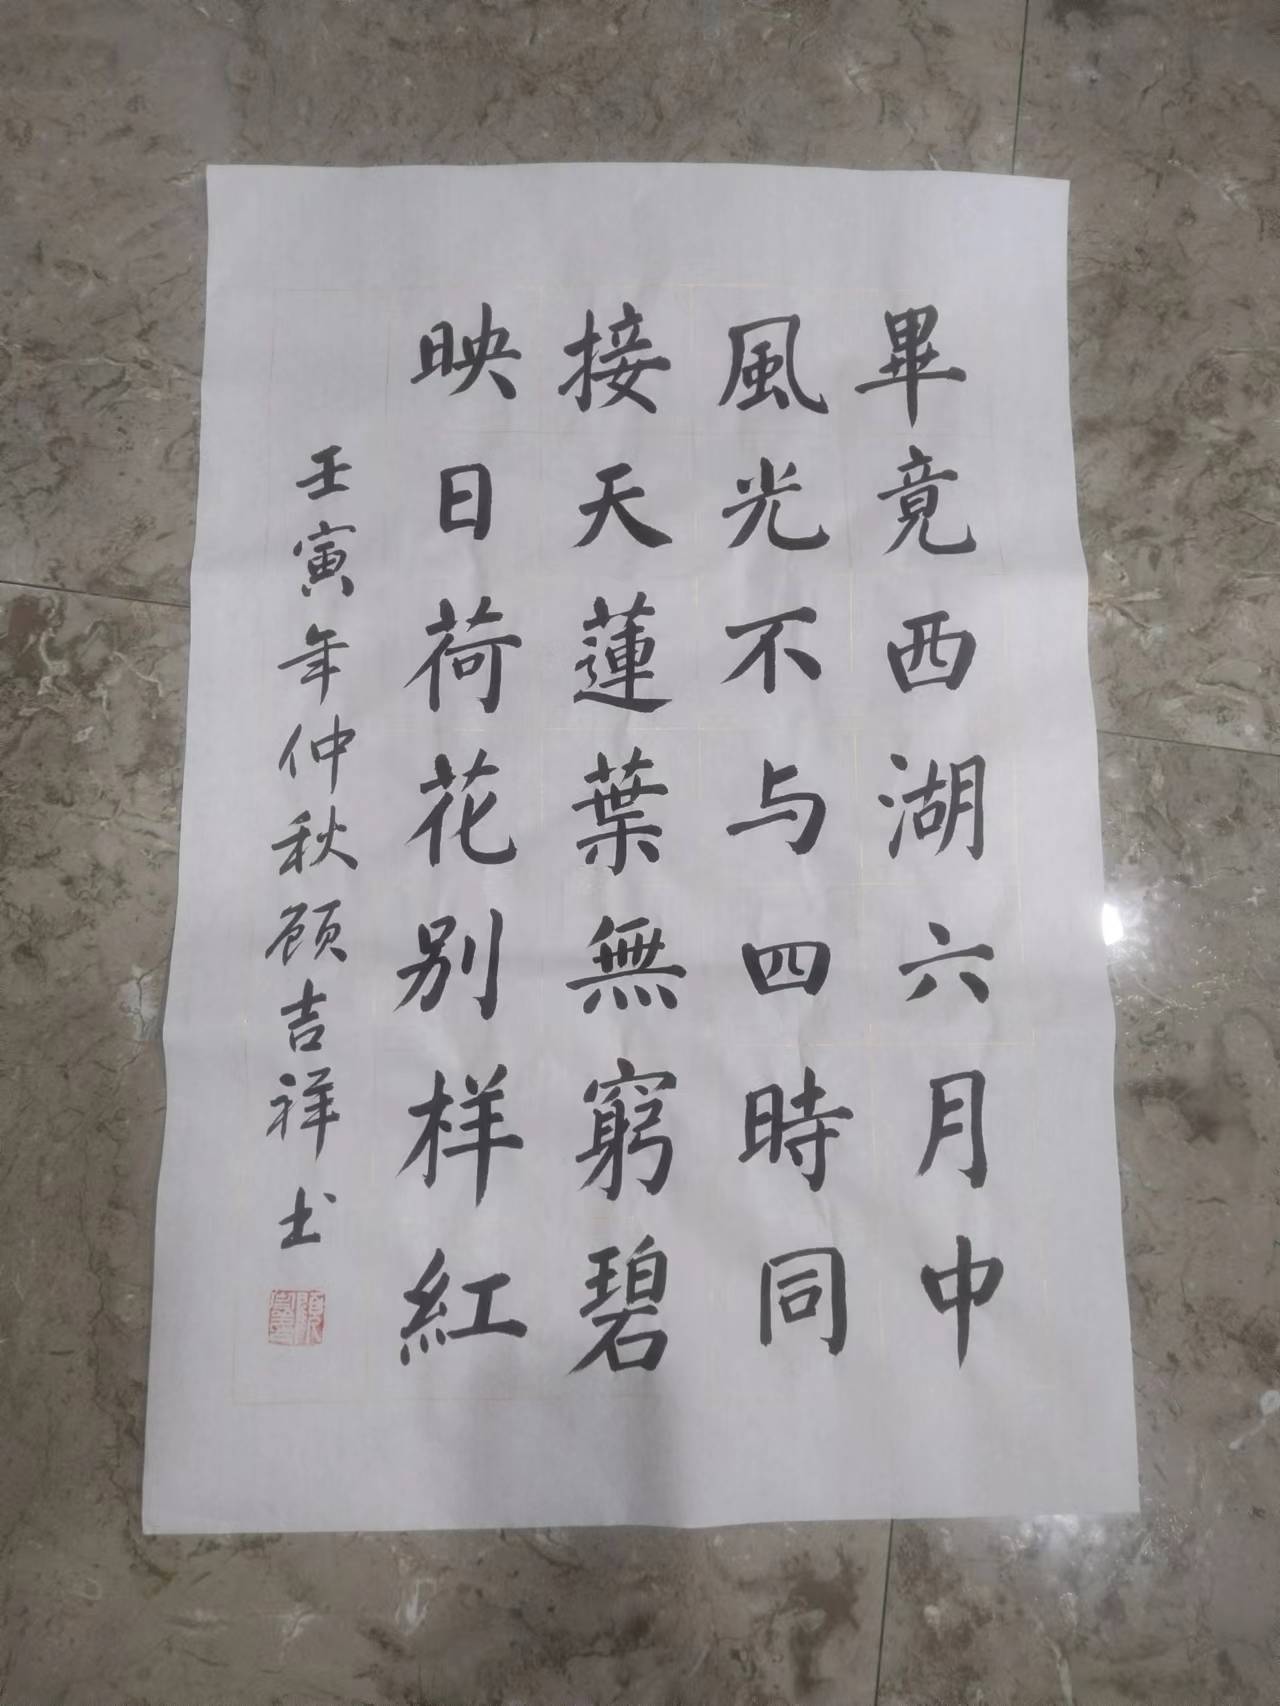 畢竟西湖六月中
風光不与四時同
接天蓮葉無窮碧
映日荷花别样紅
壬寅年仲秋顾吉祥书